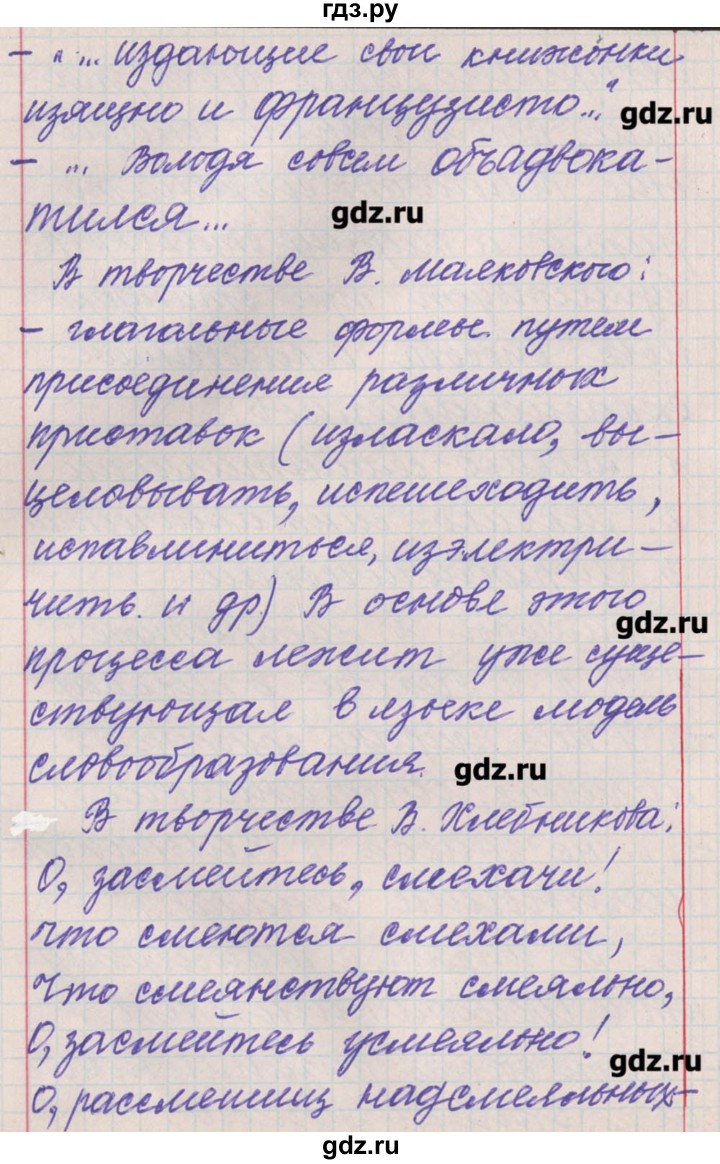 гдз.ру
- "... издающие свои книжонки
изящно и французисто..."
gdz.ru
- ... Володя совсем объадвока-
тился...
gdz.ru
В творчестве В. Маяковского:
- глагольные формы путем
присоединения различных
приставок (изласкало, вы-
целовывать, испешеходить,
испавлиниться, изэлектри-
чить и др.) В основе этого
gdz.ru
процесса лежит уже суще-
ствующая в языке модель
словообразования.
gdz.ru
В творчестве В. Хлебникова:
О, засмейтесь, смехачи!
Что смеются смехами,
Что смеянствуют смеяльно,
О, засмейтесь усмеяльно!
gdz.ru
О, рассмешищ надсмеяльных-
gdz.ru